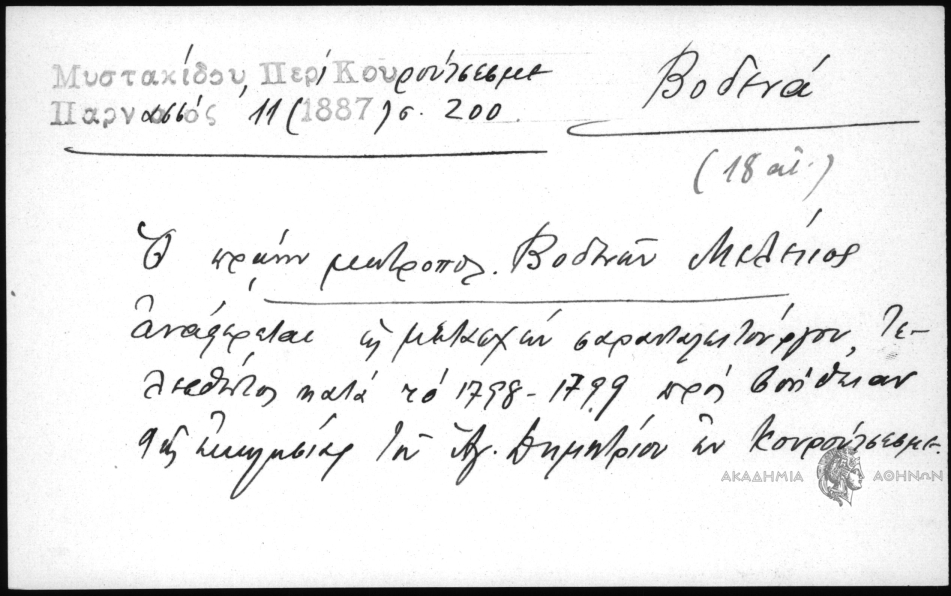 Μυστακίδου, Περί Κουρούτσεσμε
Παρνασσός, 11 (1887) σ. 200.
Βοδενά
(18 αἰ.)
Ὁ πρώην μητροπολ. Βοδενῶν Μελέτιος
ἀναφέρεται ὡς μετασχών σαρανταλειτούργου, τε-
λεσθέντος κατά τό 1798-1799 πρός βοήθειαν
τῆς ἐκκλησίας τοῦ Ἁγ. Δημητρίου ἐν Κουρούτσεσμε.
ΑΚΑΔΗΜΙΑ ΑΘΗΝΩΝ